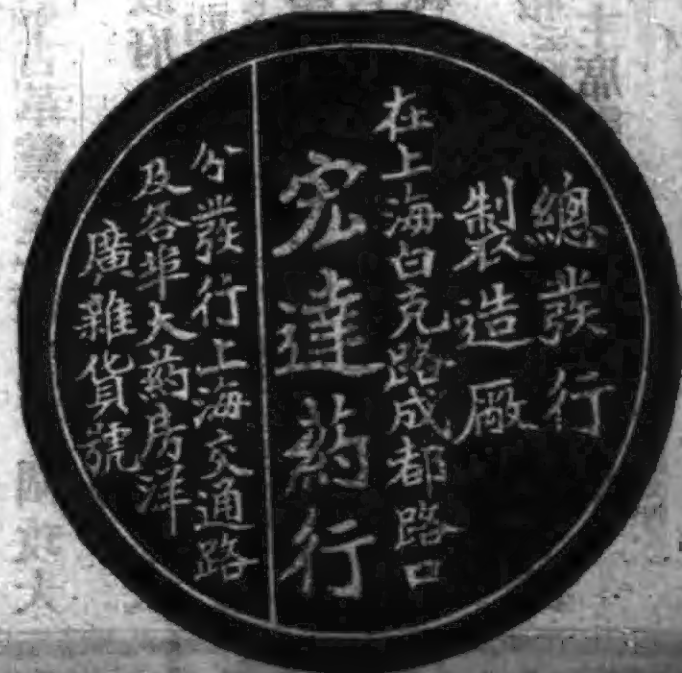 總發行
製造厰
在上海白克路成都路口
宏達葯行
分發行上海交通路
及各埠大葯房洋
廣雜貨號